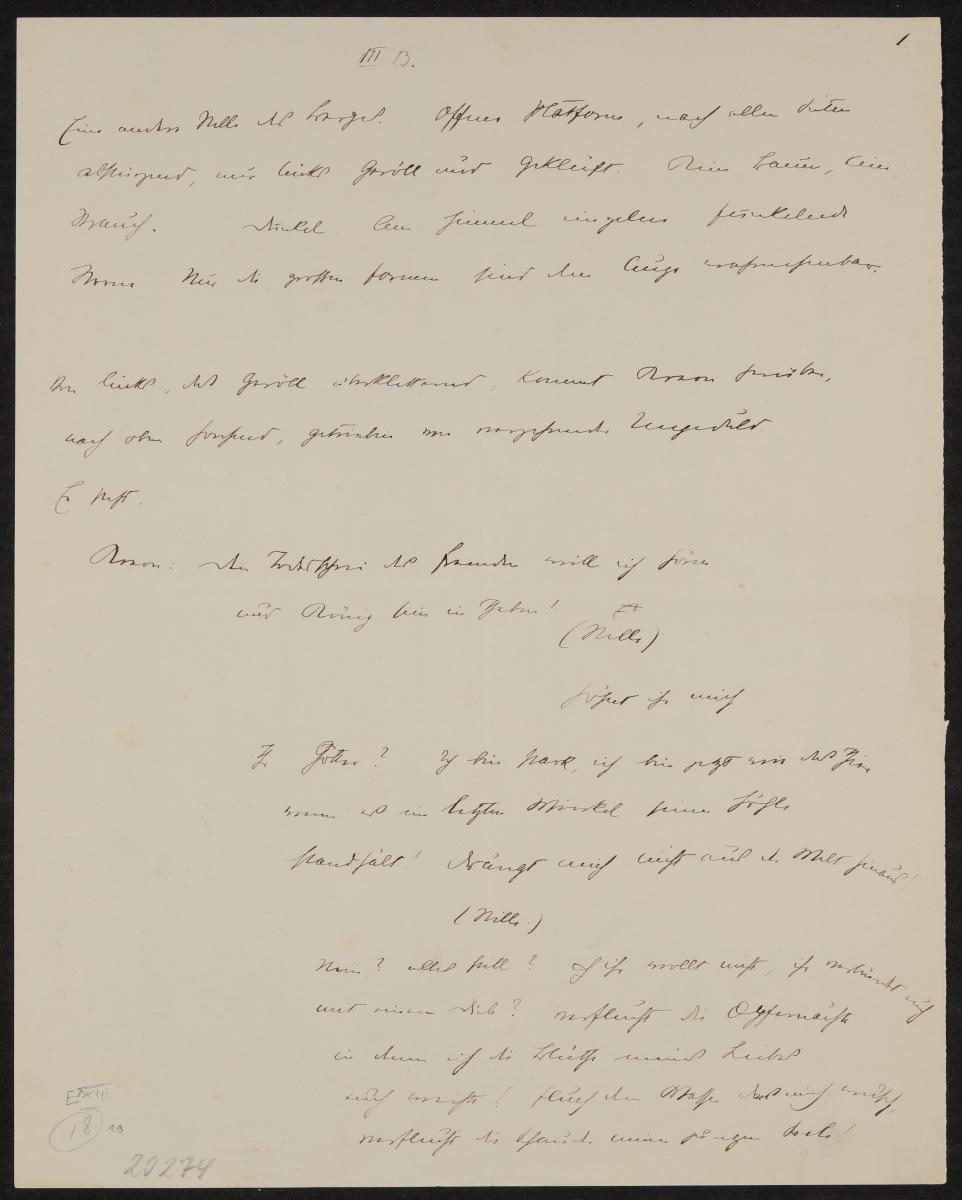 1.
III B.
Eine andere Stelle des Berges. Offene Plattform, nach allen Seiten
abstürzend, nur links Geröll und Geklüft. Kein Baum, kein
Strauch. Dunkel. Am Himmel einzelne funkelnde
Sterne. Nur die grossen Formen sind dem Auge wahrnehmbar.
Von links, das Geröll überkletternd, kommt Kreon herüber,
nach oben horchend, getrieben von verzehrender Ungeduld.
Er steht.
Kreon: Den Todesschrei des Fremden will ich hören
und König sein in Theben!
(Stille)
höhnt ihr mich
Ihr Götter? Ich bin stark, ich bin jetzt wie das Thier
wenn es im letzten Winkel seiner Höhle
standhält! Drängt mich nicht aus der Welt hinaus!
(Stille.)
Nein? alles still? ihr wollt nicht, ihr verbündet euch
mit einem Dieb? verflucht die Opfernächte
in denen ich die Blüthe meines Leibes
euch weihte! Fluch dem Wasser das mich wusch,
verflucht die Schauder meiner jungen Seele!
EXXIII
18
19
20274